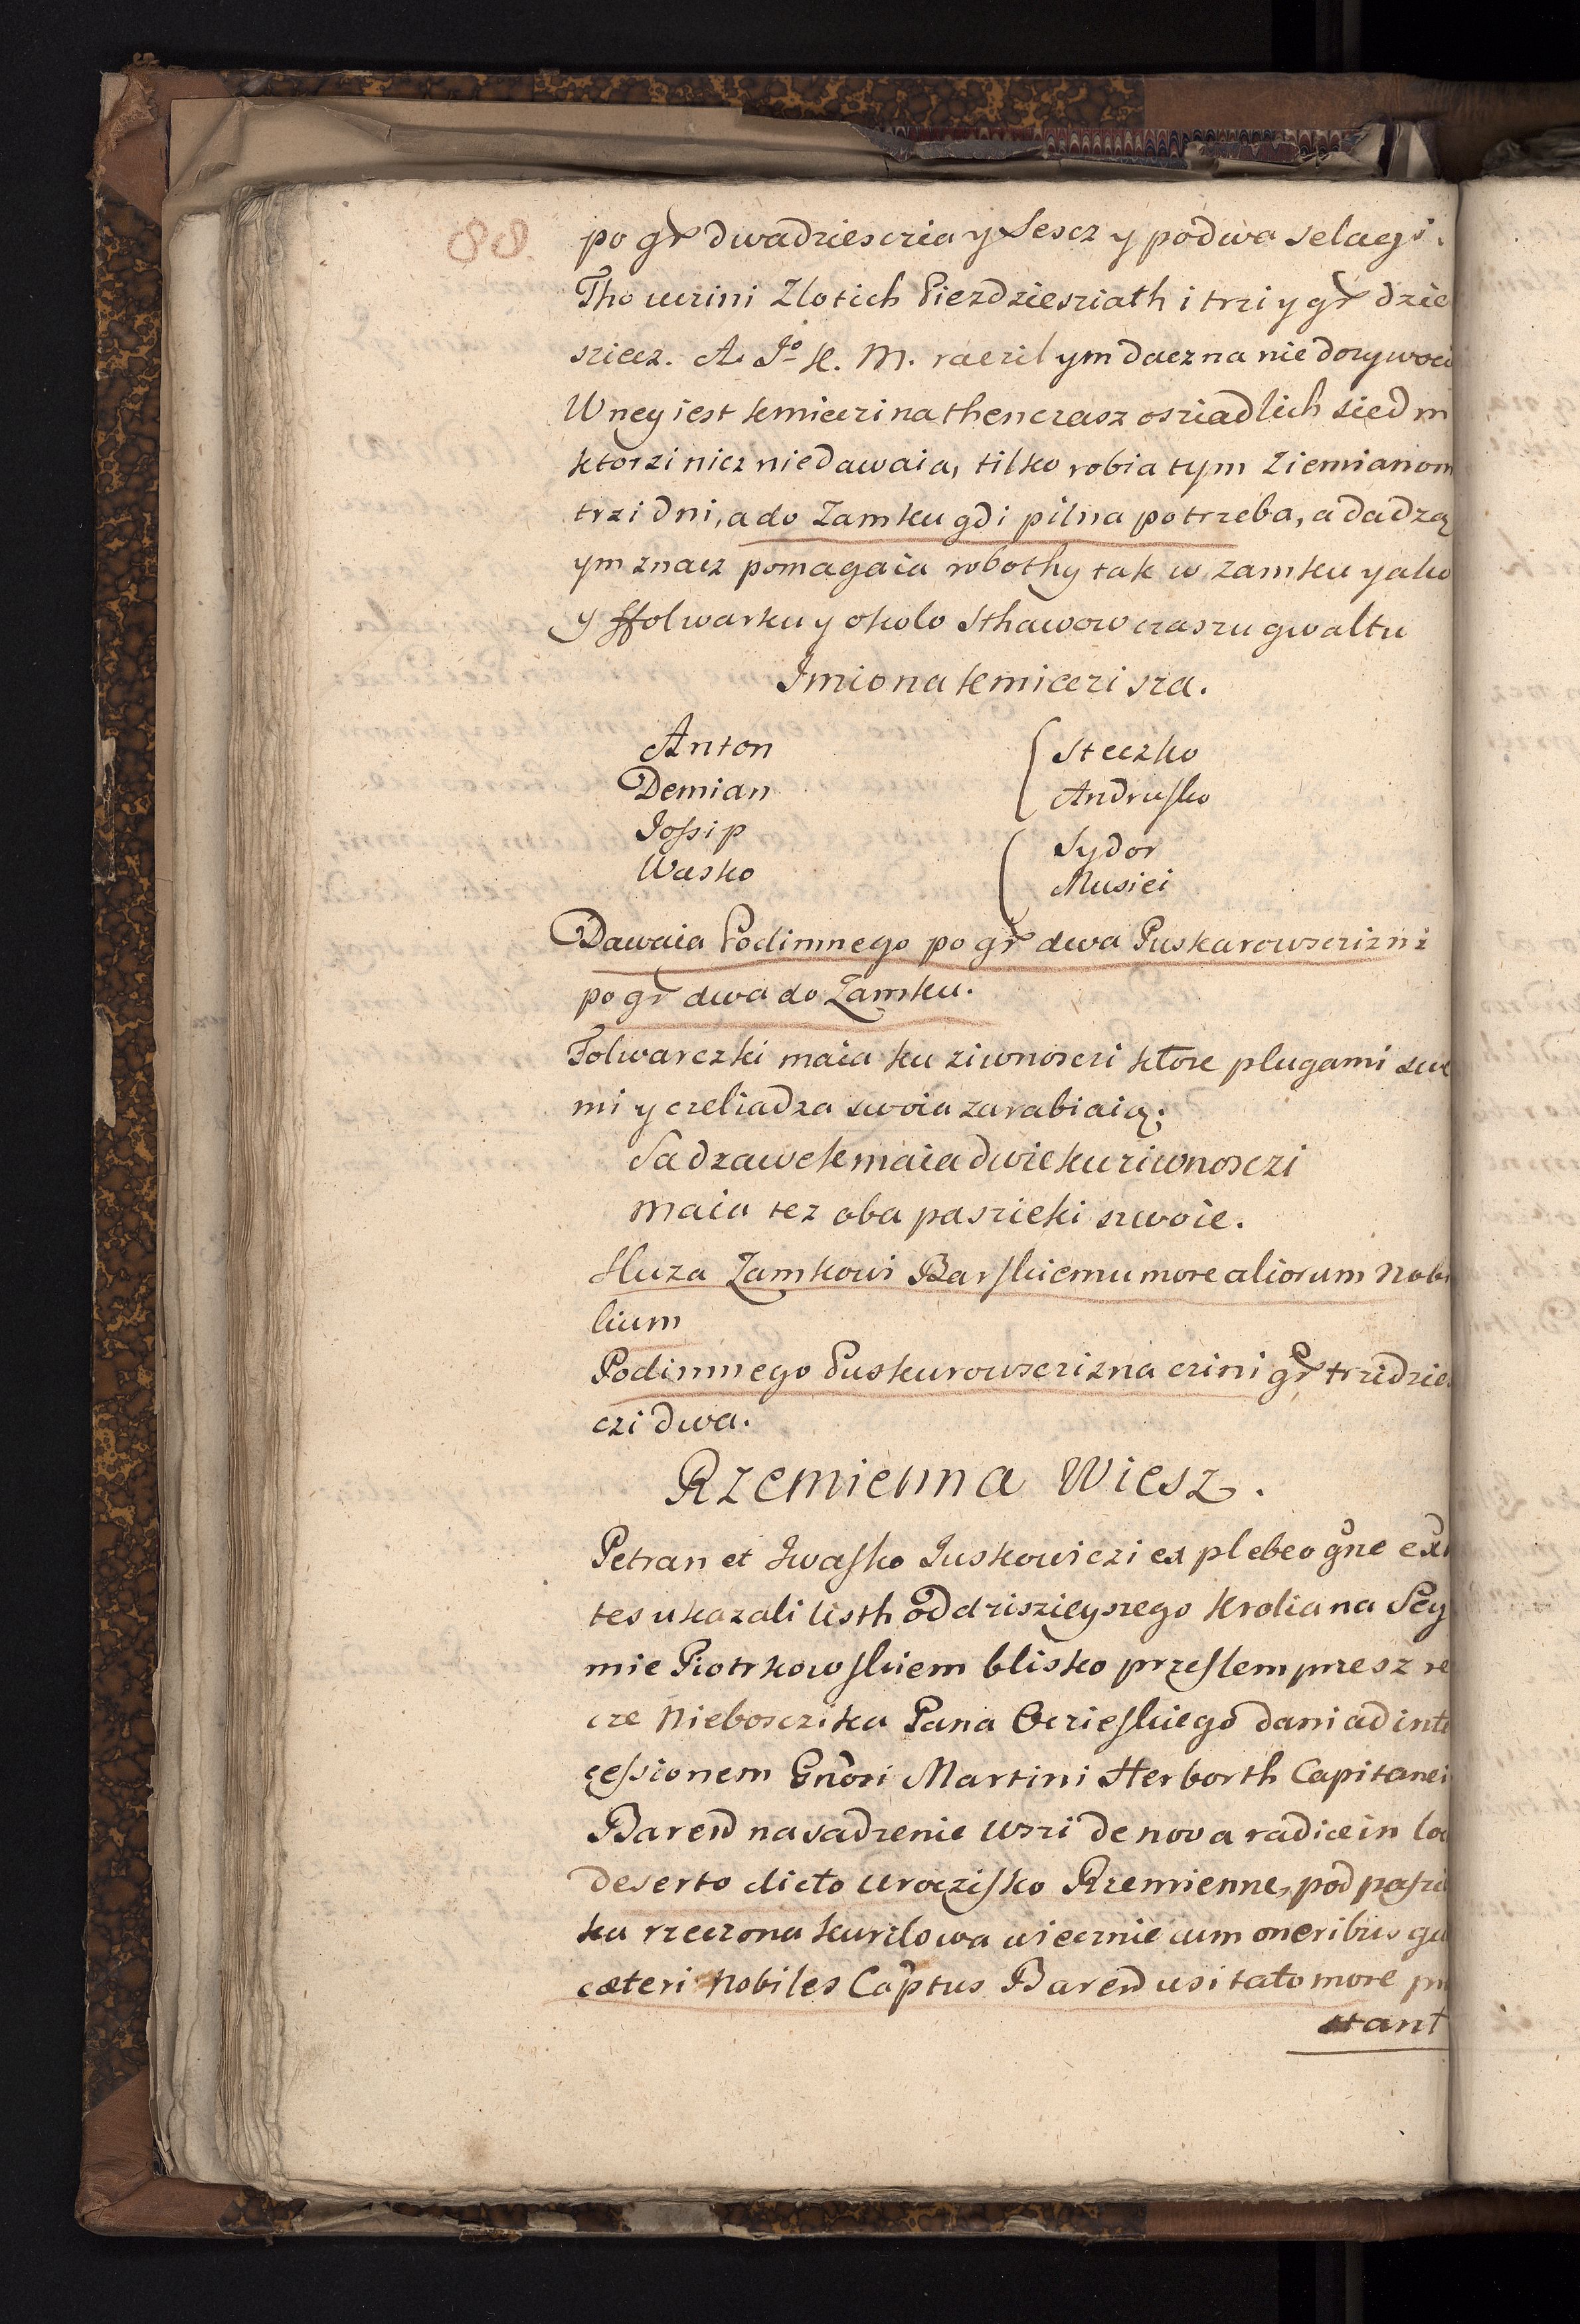 88.
po gr dwadziesczia y Sescz y podwa selagi.
Tho uczini Zlotich Piezdziesziath i trzi y gr dzie
sziecz. A. Jo K. M. raczil ym dacz na nie dozywoci
W ney iest kmieczi na thenczasz osziadlich siedm
ktorzi nicz niedawaia, tilko robia tym Ziemianom
trzi dni, a do Zamku gdi pilna potrzeba, a dadzą
ym znacz pomagaia robothy tak w zamku yako
y ffolwarku y okolo Sthawow czaszu gwaltu
Imiona kmieczi sza.
Anton
Demian
Jossip
Wasko
Steczko
Andrusko
Sydor
Musiei
Dawaia Podimnego po gr dwa Puskarowsczizni
po gr dwa do Zamku.
Folwarczki maia ku ziwnosczi ktore plugami swe
mi y czeliadza swoia zarabiaią;
Sadzawek maia dwie ku ziwnosczi
maia tez oba paszieki szwoie.
Sluza Zamkowi Barskiemu more aliorum Nobi
lium
Podimnego Puskarowsczizna czini gr trzidzie
czi dwa.
Rzemienna Wiesz.
Petran et Iwasko Juskowiczi ex plebeo gñe exñ
tes ukazali listh od dziszieyszego Krolia na Sey
mie Piotrkowskiem blisko przeslem przesz re
cze Niebosczika Pana Oczieskiego dani ad inte
cessionem Gnosi Martini Herborth Capitanei
Bareñ na sadzenie wszi de nova radice in lo
deserto dicto uroczisko Rzemienne, pod paszie
ka rzeczona kurilowa wiecznie cum oneribus qu
cæteri Nobiles Captus Bareñ usitato more pr
stant